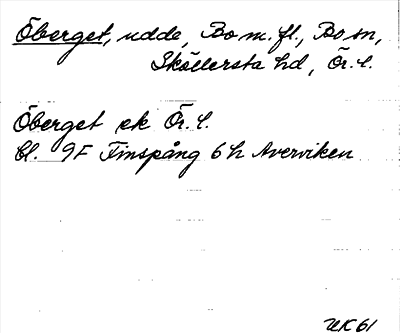 Öberget, udde, Bo m.fl., Bo sn,
Sköllersta hd, Ör. l.
Öberget ek Ör. l.
Bl. 9F Finspång 6h Averviken
UK 61